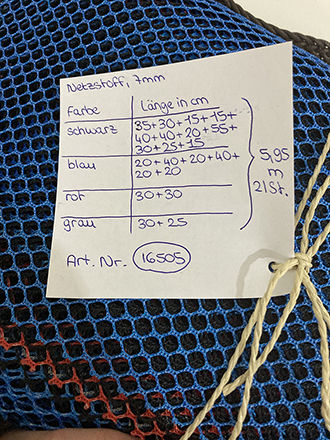 Netzstoff, 7mm
Farbe Länge in cm
schwarz 35+30+15+15+
40+40+20+55+
30+25+15
blau 20+40+20+40+
20+20
rot 30+30
grau 30+25
5,95
m
21St.
Art. Nr. 16505